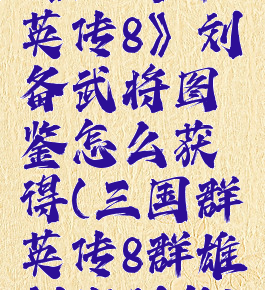 英传8》刘
备武将图
鉴怎么获
得(三国群
英传8群雄